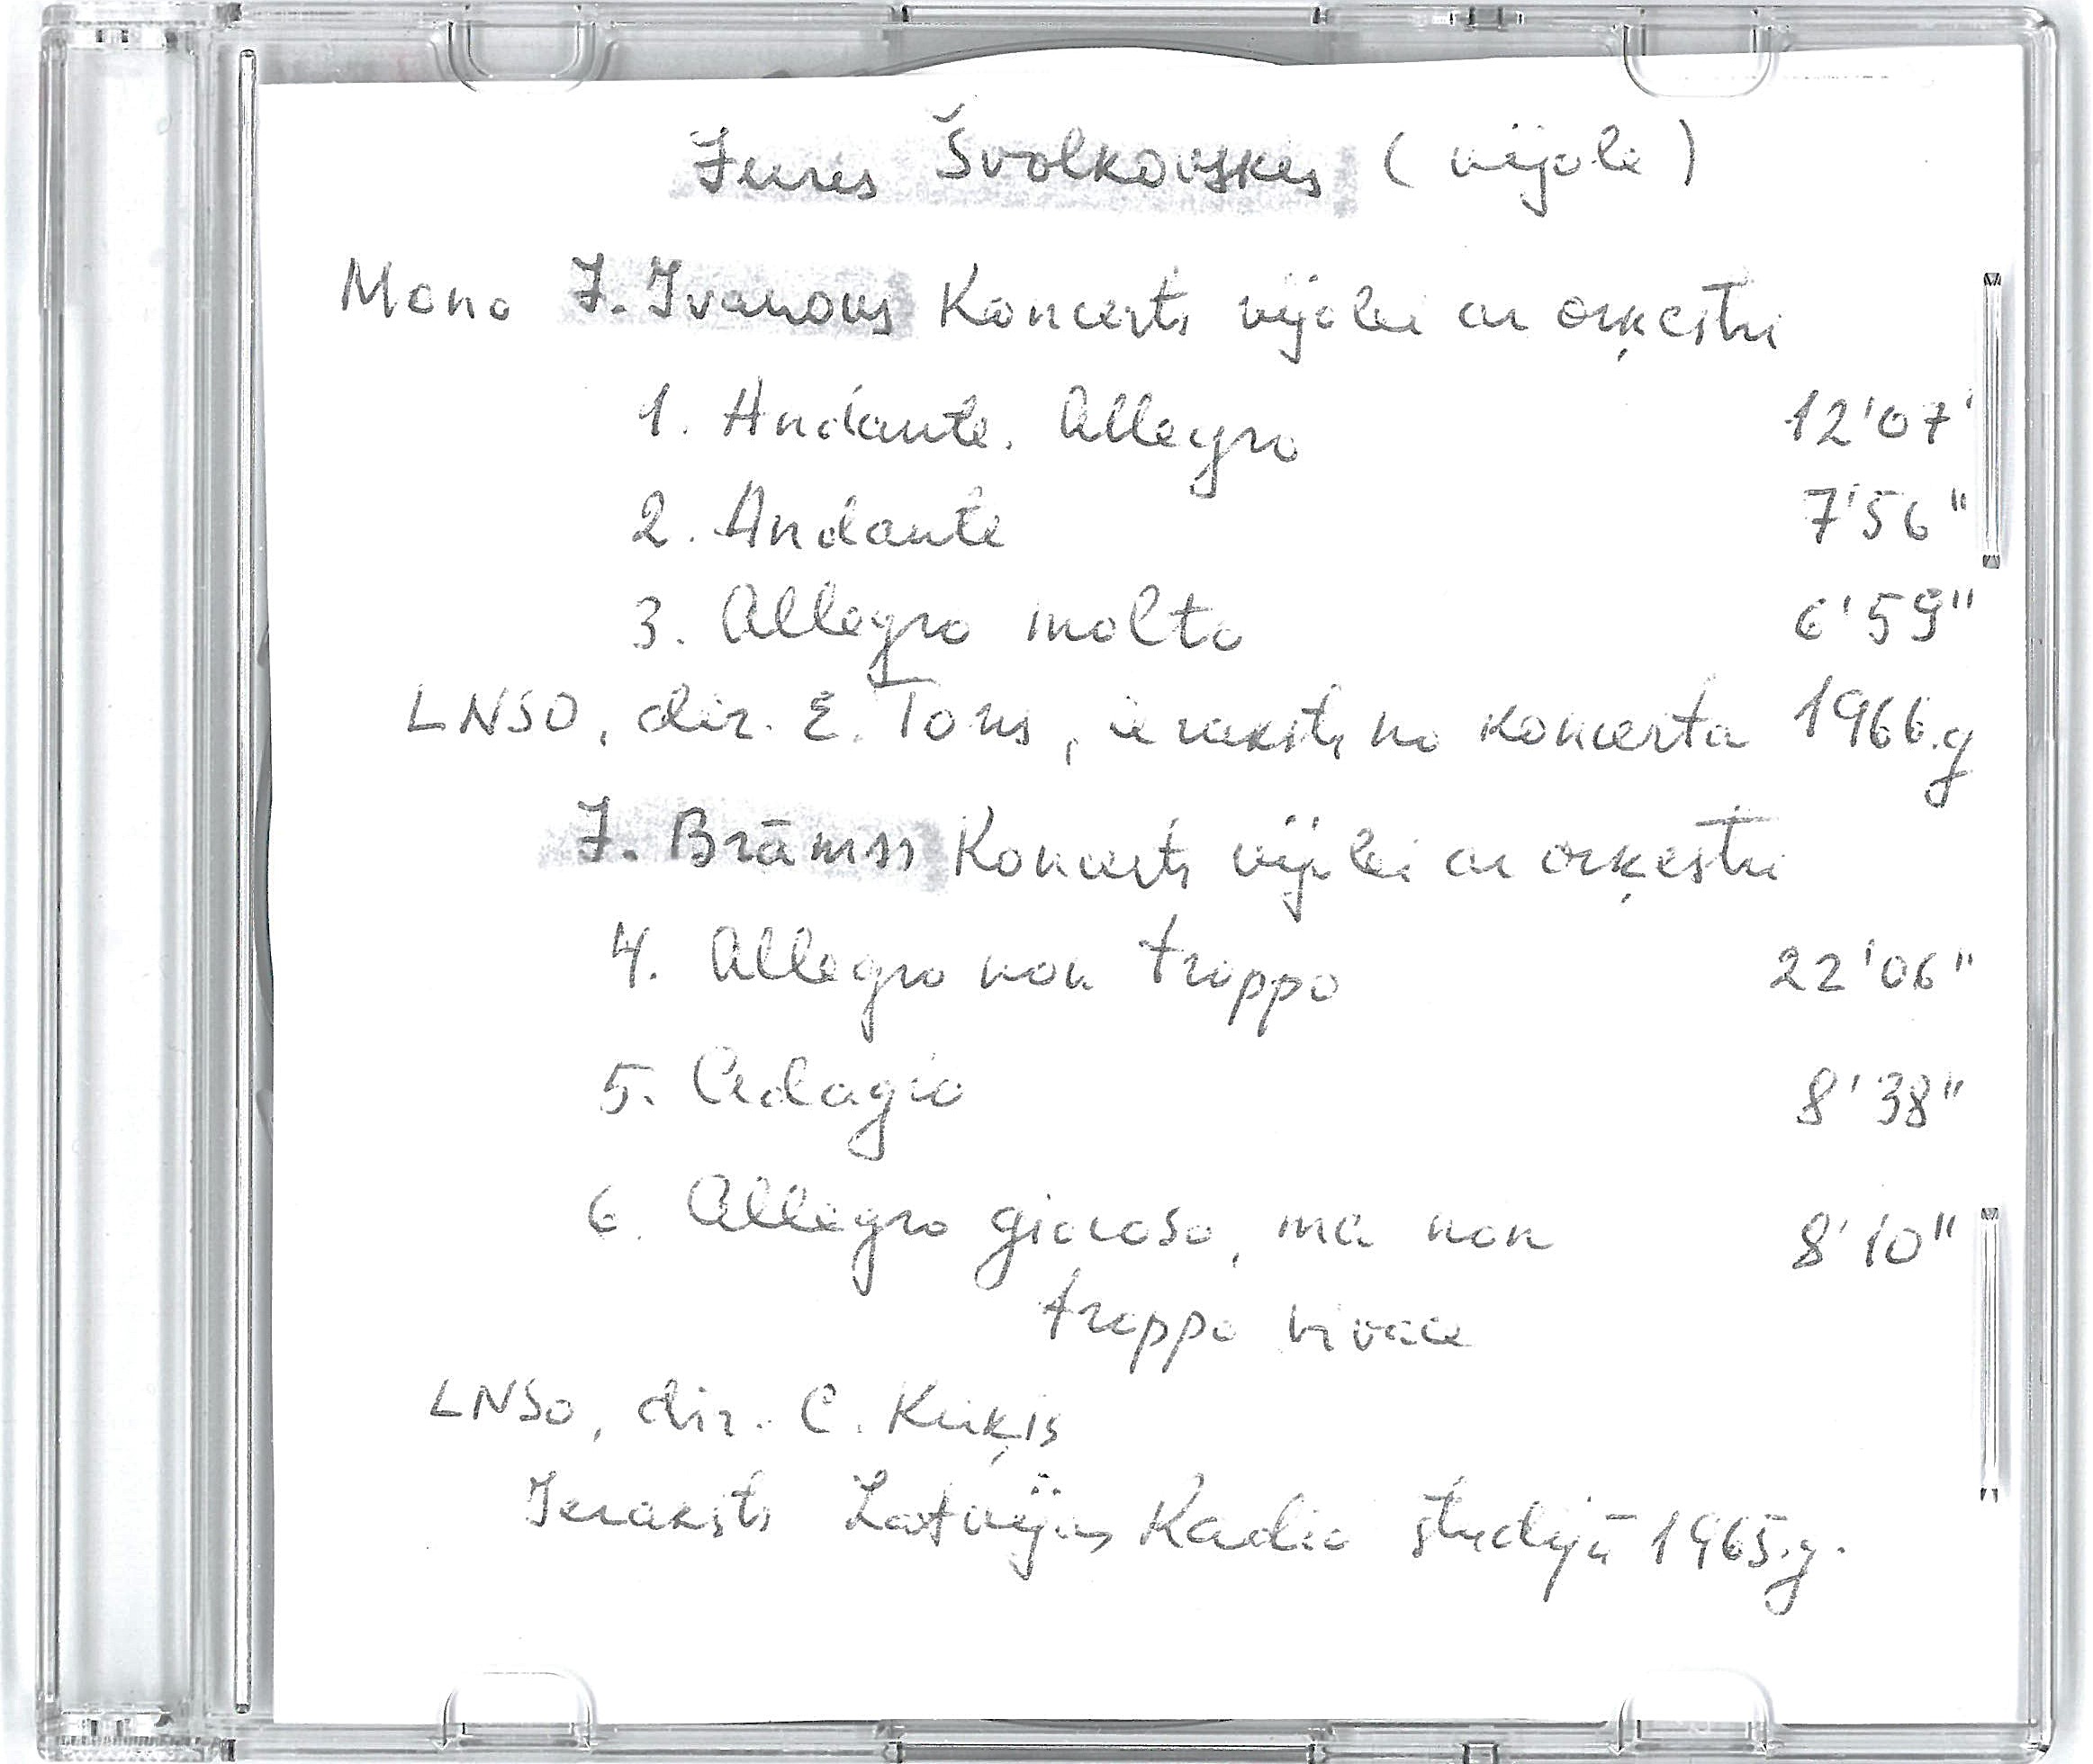 Juris Švolkovskis (vijole)
Mono J. Ivanovs Koncerts vijolei ar orķestri
1. Andante. Allegro 12'07'
2. Andante 7'56"
3. Allegro molto 6'59"
LNSO, dir. E. Tons, ieraksts no koncerta 1966.g
J. Brāmss Koncerts vijolei ar orķestri
4. Allegro non troppo 22'06"
5. Adagio 8'38"
6. Allegro giocoso, ma non 8'10"
troppo vivace
LNSO, dir. C. Kriķis
Ieraksts Latvijas Radio studijā 1965.g.